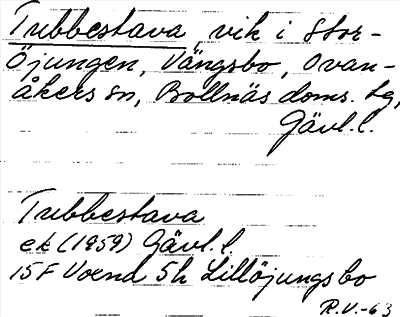 Tubbestava, vik i Stor-
Öjungen, Vängsbo, Ovan-
åkers sn, Bollnäs doms. tg,
Gävl.l.
Tubbestava
ek (1959) Gävl.l.
15F Voxna 5h Lillöjungsbo
R.V.-63